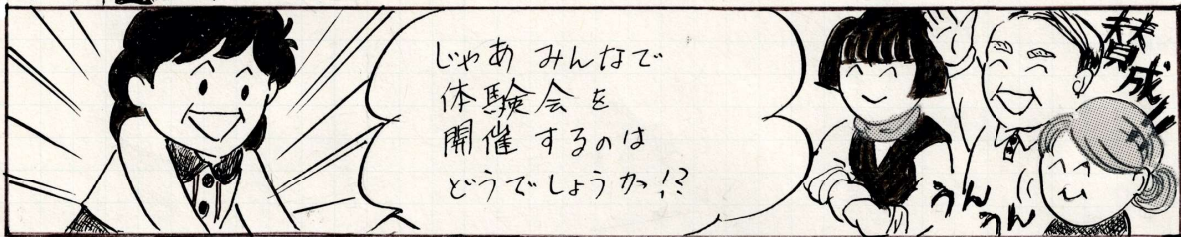 じゃあ みんなで
体験会を
開催するのは
どうでしょうか!?
賛成!!
うん
うん